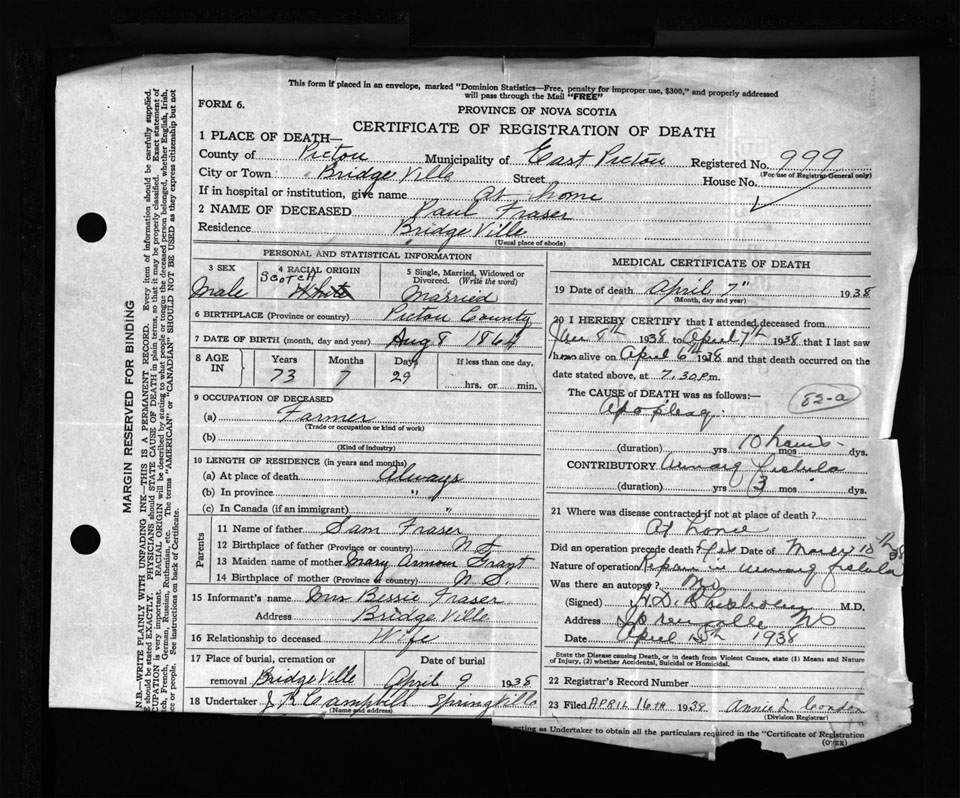 This form if placed in an envelope, marked "Dominion Statistics—Free, penalty for improper use, $300," and properly addressed
will pass through the Mail "FREE"
FORM 6.
PROVINCE OF NOVA SCOTIA
CERTIFICATE OF REGISTRATION OF DEATH
1 PLACE OF DEATH—
County of Pictou Municipality of East Pictou Registered No. 999
(For use of Registrar General only)
City or Town Bridge Ville Street House No.
If in hospital or institution, give name At home
2 NAME OF DECEASED Paul Fraser
Residence Bridge Ville
(Usual place of abode)
PERSONAL AND STATISTICAL INFORMATION
3 SEX Male
4 RACIAL ORIGIN SCOTCH White
5 Single, Married, Widowed or Divorced. (Write the word) Married
6 BIRTHPLACE (Province or country) Pictou County
7 DATE OF BIRTH (month, day and year) Aug 8 1864
8 AGE IN Years 73 Months 7 Days 29 If less than one day. hrs. or min.
9 OCCUPATION OF DECEASED
(a) Farmer
(Trade or occupation or kind of work)
(b)
(Kind of industry)
10 LENGTH OF RESIDENCE (in years and months)
(a) At place of death Always
(b) In province "
(c) In Canada (if an immigrant) "
Parents
11 Name of father Sam Fraser
12 Birthplace of father (Province or country) N.S.
13 Maiden name of mother Mary Grant
14 Birthplace of mother (Province or country) N.S.
15 Informant's name Mrs Bessie Fraser
Address Bridge Ville
16 Relationship to deceased Wife
17 Place of burial, cremation or removal Bridge Ville
Date of burial April 9 1938
18 Undertaker J. R Campbell Springville
(Name and address)
MEDICAL CERTIFICATE OF DEATH
19 Date of death April 7" 1938
(Month, day and year)
20 I HEREBY CERTIFY that I attended deceased from
8th 1938 to April 7th 1938 that I last saw
him alive on April 6th 1938 and that death occurred on the
date stated above, at 7.30 P.m.
The CAUSE of DEATH was as follows:—
82-a
Apoplexy
(duration) yrs mos dys. 10 hours
CONTRIBUTORY Urinary Fistula
(duration) yrs 3 mos dys.
21 Where was disease contracted if not at place of death?
At home
Did an operation precede death? Yes Date of March 18th 38
Nature of operation Repair urinary fistula
Was there an autopsy? No
(Signed) H.D. Chisholm M.D.
Address NS
Date April 1938
State the Disease causing Death, or in death from Violent Causes, state (1) Means and Nature of Injury, (2) whether Accidental, Suicidal or Homicidal.
22 Registrar's Record Number
23 Filed APRIL 16TH 1938 Annie L Condon
(Division Registrar)
acting as Undertaker to obtain all the particulars required in the "Certificate of Registration
(OVER)
MARGIN RESERVED FOR BINDING
N.B.—WRITE PLAINLY WITH UNFADING INK—THIS IS A PERMANENT RECORD. Every item of information should be carefully supplied.
should be stated EXACTLY. PHYSICIANS should STATE CAUSE OF DEATH in plain terms, so that it may be properly classified. Exact statement of
CUPATION is very important. RACIAL ORIGIN will be described by stating to what people or tongue the deceased person belonged, whether English, Irish,
tch, French, German, Russian, Ruthenian, etc. The terms "AMERICAN" or "CANADIAN" SHOULD NOT BE USED as they express citizenship but not
ce or people. See instructions on back of Certificate.